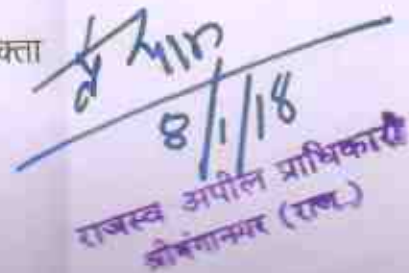 क्ता
8/1/18
राजस्व अपील प्राधिकारी
श्रीगंगानगर (राज.)